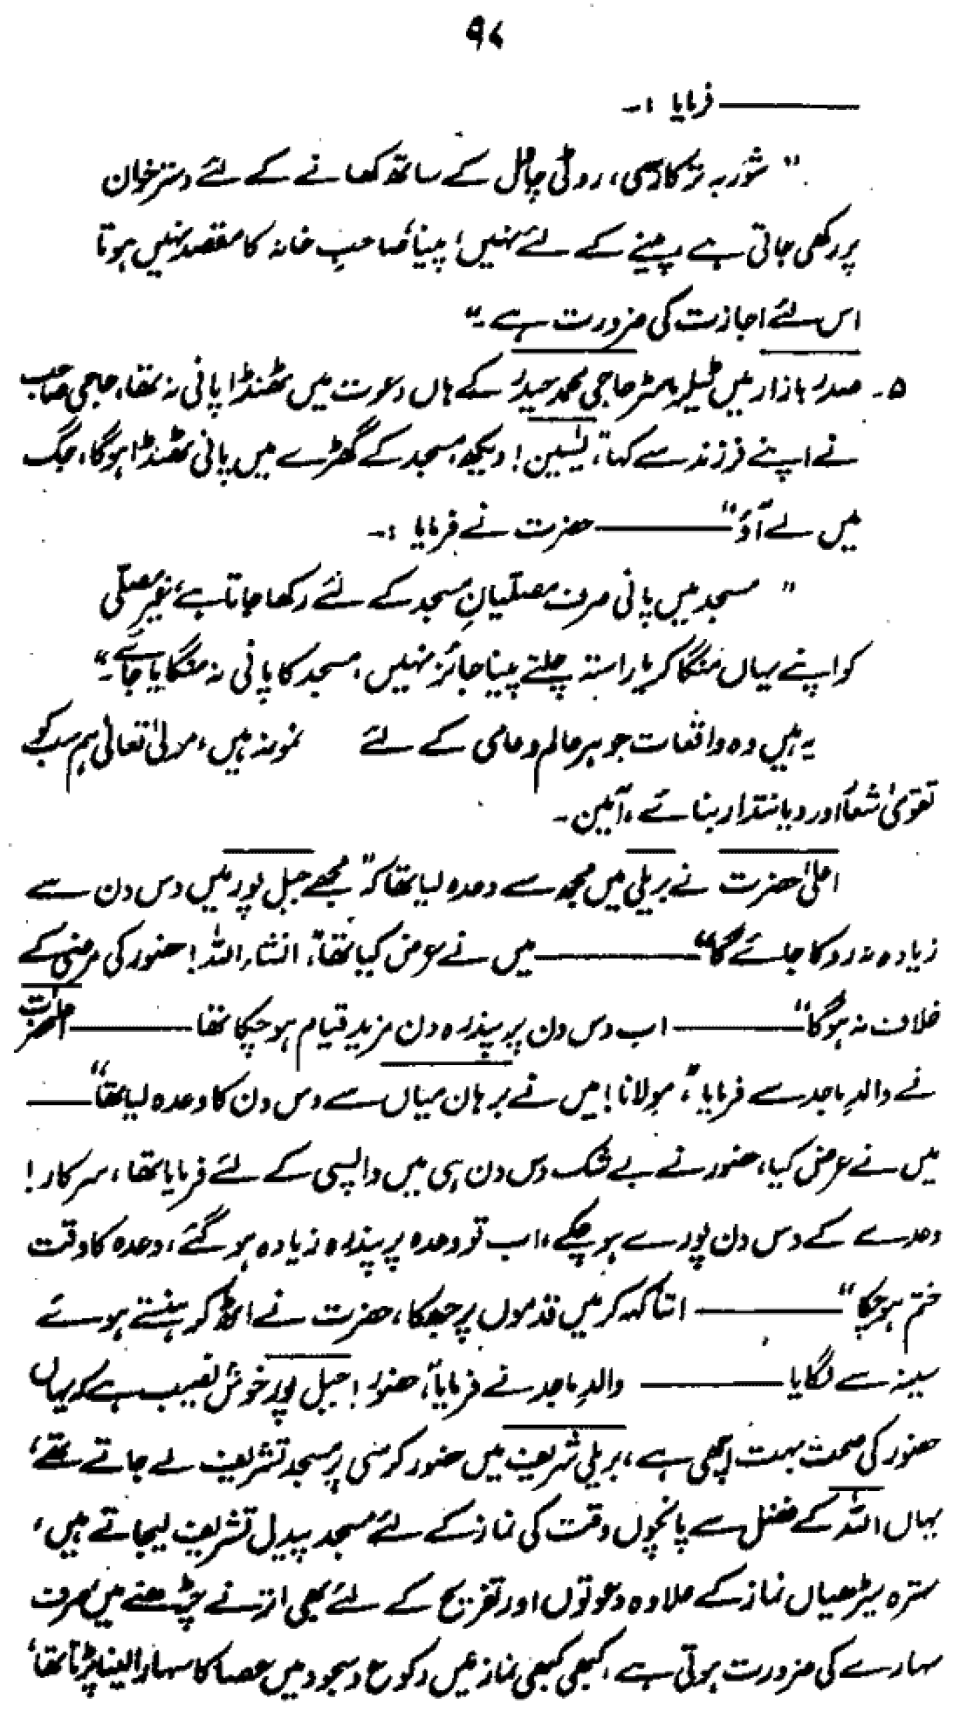 ۹۸
——— فرمایا :۔
" شوربہ ترکاری، روٹی چاول کے ساتھ کھانے کے لئے دسترخوان
پر رکھی جاتی ہے پینے کے لئے نہیں! پینا صاحبِ خانہ کا مقصد نہیں ہوتا
اس لئے اجازت کی ضرورت ہے۔"
۵۔ صدر بازار میں ٹیلر ماسٹر حاجی محمد حیدر کے ہاں دعوت میں ٹھنڈا پانی نہ تھا، حاجی صاحب
نے اپنے فرزند سے کہا، یٰسین! دیکھ، مسجد کے گھڑے میں پانی ٹھنڈا ہوگا، جگ
میں لے آؤ" ——— حضرت نے فرمایا :۔
" مسجد میں پانی صرف مصلّیانِ مسجد کے لئے رکھا جاتا ہے، غیر مصلّی
کو اپنے یہاں منگا کر یا راستہ چلتے پینا جائز نہیں، مسجد کا پانی نہ منگایا جائے۔"
یہ ہیں وہ واقعات جو ہر عالم و عامی کے لئے نمونہ ہیں، مولیٰ تعالیٰ ہم سب کو
تقویٰ شعار اور دیانتدار بنائے، آمین۔
اعلیٰ حضرت نے بریلی میں مجھ سے وعدہ لیا تھا کہ "مجھے جبل پور میں دس دن سے
زیادہ نہ روکا جائے گا" ——— میں نے عرض کیا تھا، "انشاء اللہ! حضور کی مرضی کے
خلاف نہ ہوگا" ——— اب دس دن پر پندرہ دن مزید قیام ہو چکا تھا ——— اعلٰحضرت
نے والد ماجد سے فرمایا، "مولانا! میں نے برہان میاں سے دس دن کا وعدہ لیا تھا" ———
میں نے عرض کیا، حضور نے بے شک دس دن ہی میں واپسی کے لئے فرمایا تھا، سرکار!
وعدے کے دس دن پورے ہو چکے، اب تو وعدہ پر پندرہ زیادہ ہو گئے، وعدہ کا وقت
ختم ہو چکا" ——— اتنا کہہ کر میں قدموں پر جھکا، حضرت نے اٹھ کر ہنستے ہوئے
سینہ سے لگایا ——— والد ماجد نے فرمایا، "حضور! جبل پور خوش نصیب ہے کہ یہاں
حضور کی صحت بہت اچھی ہے، بریلی شریف میں حضور کرسی پر مسجد تشریف لے جاتے تھے،
یہاں اللہ کے فضل سے پانچوں وقت کی نماز کے لئے مسجد پیدل تشریف لیجاتے ہیں،
سترہ سیڑھیاں نماز کے علاوہ دعوتوں اور تفریح کے لئے بھی اترنے چڑھنے میں صرف
سہارے کی ضرورت ہوتی ہے، کبھی کبھی نماز میں رکوع و سجود میں عصا کا سہارا لینا پڑتا تھا،